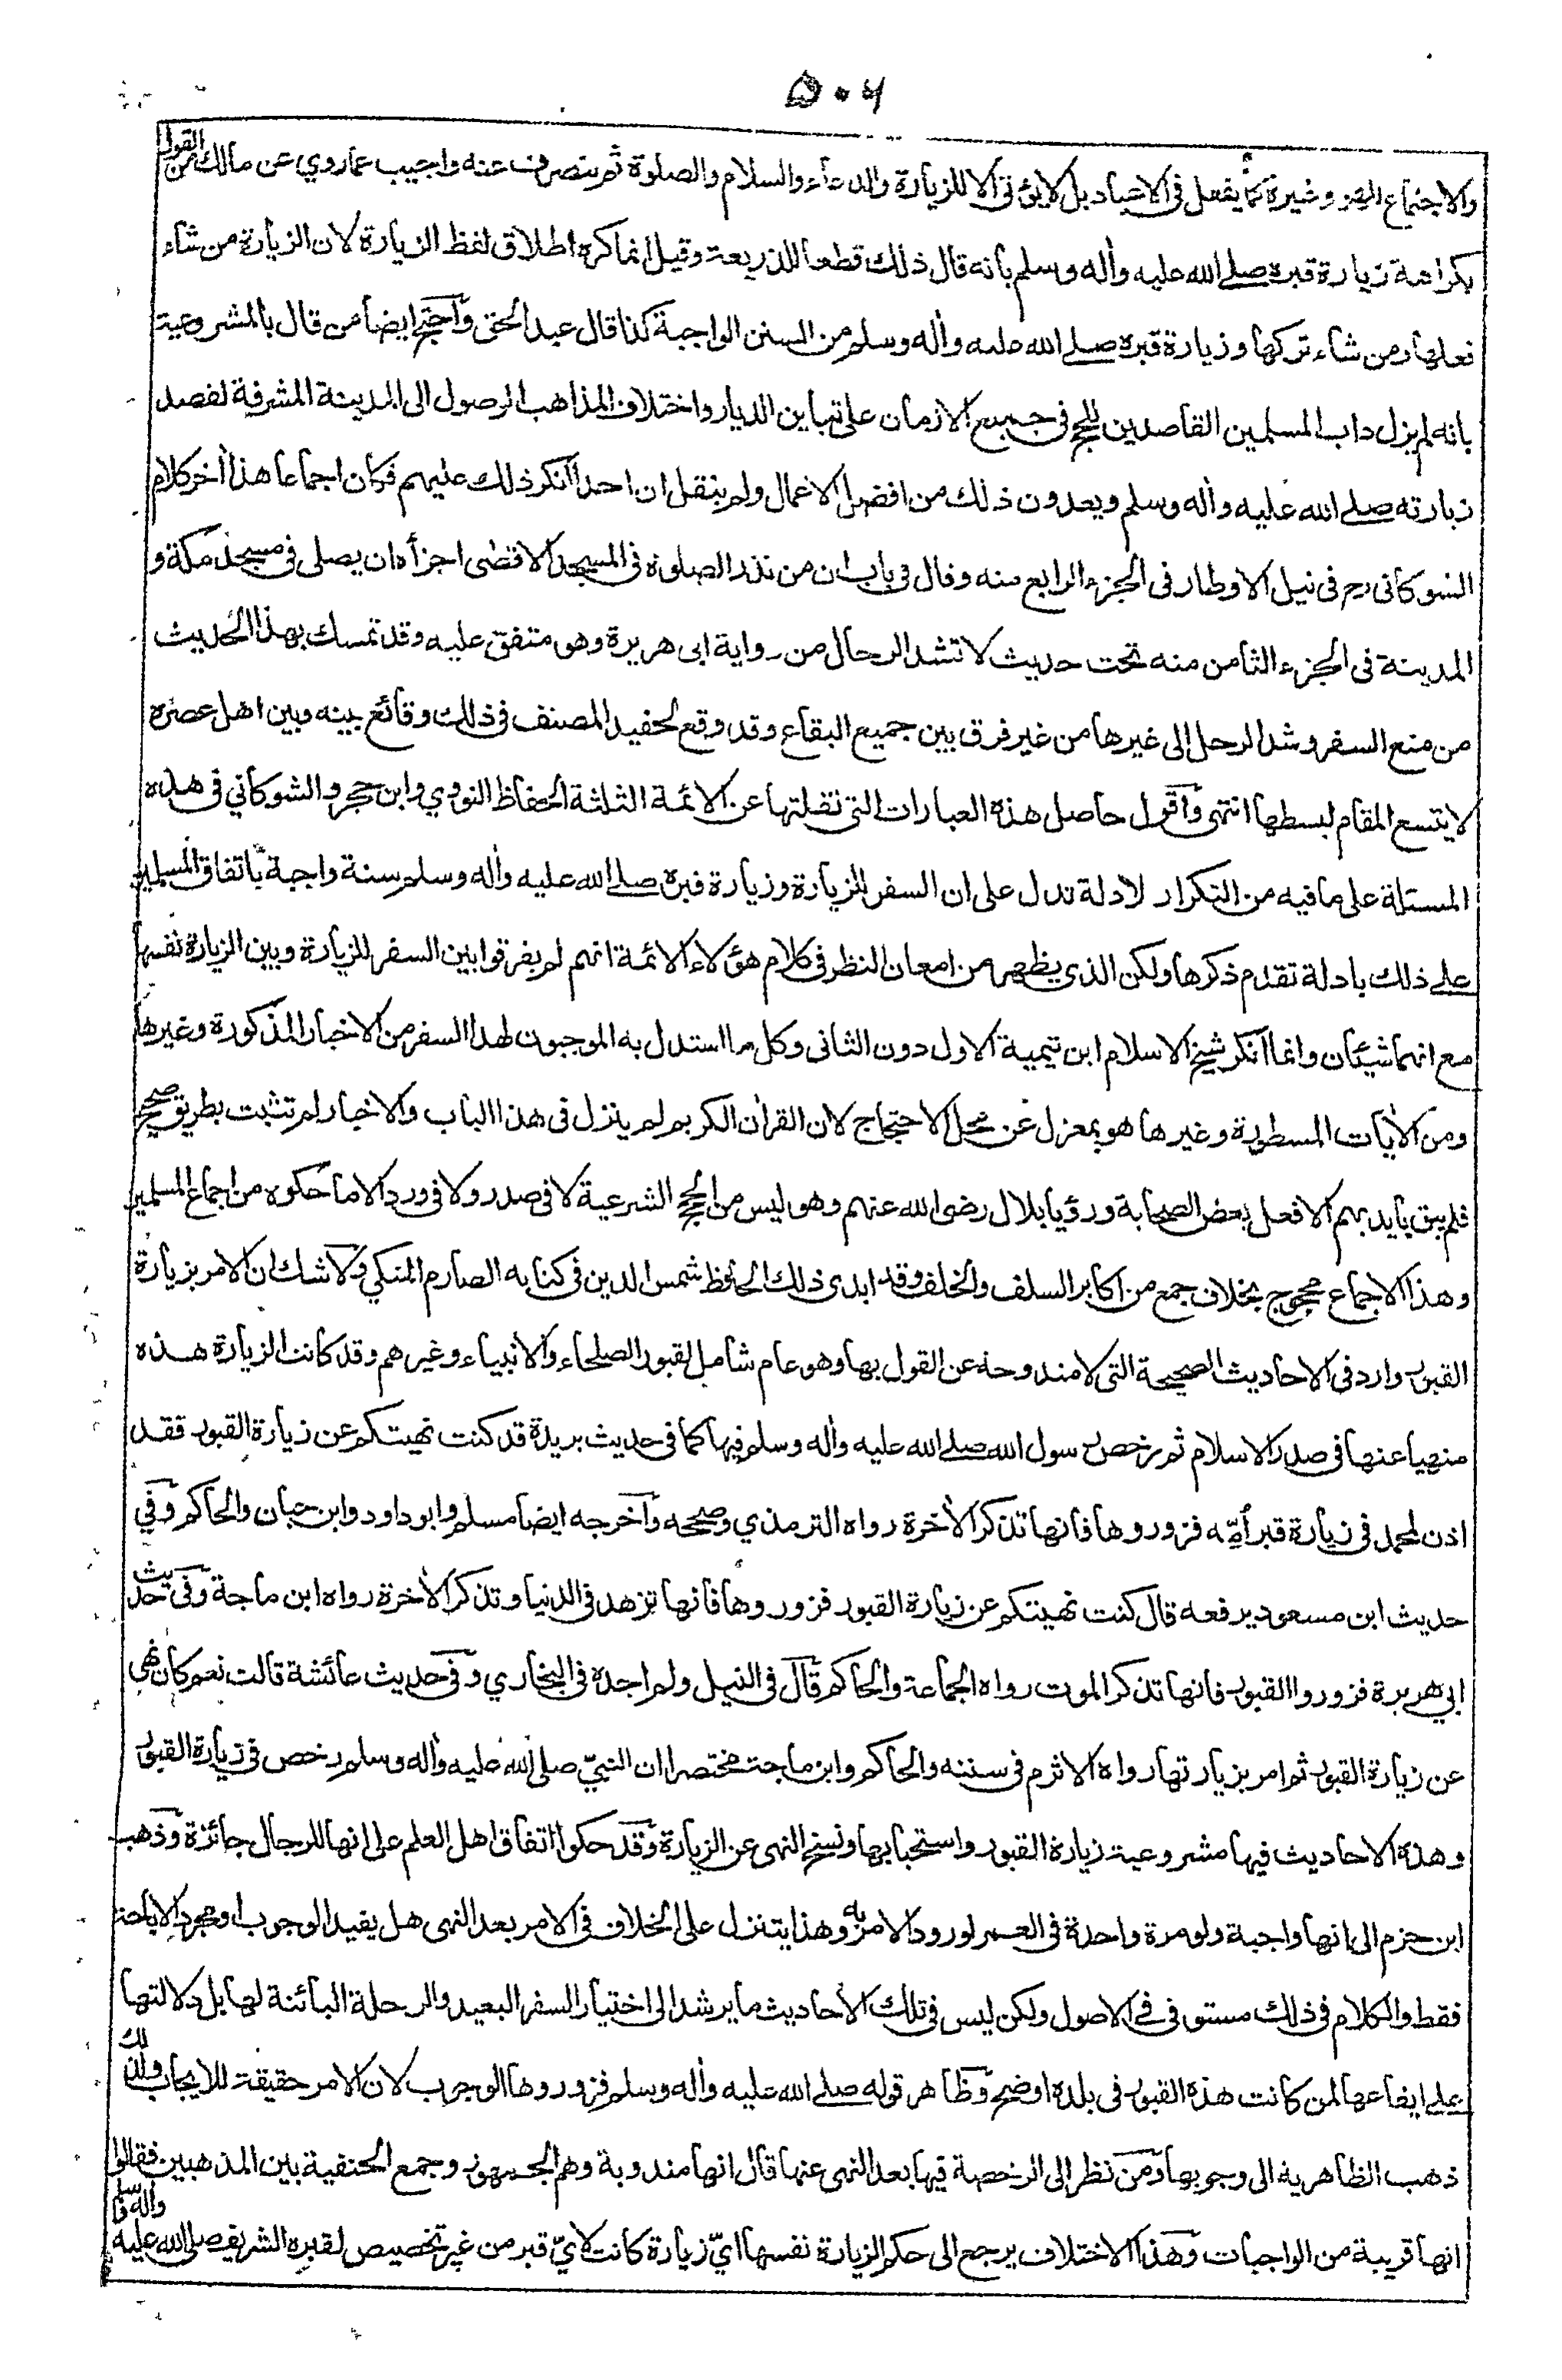 ٥٠٦
والاجتماع للهو وغيره كما يفعل في الاعياد بل لا يؤتى الا للزيارة والدعاء والسلام والصلوة ثم ينصرف عنه واجيب عما روي عن مالك من القول
بكراهة زيارة قبره صلے الله عليه واٰله وسلم بانه قال ذلك قطعا للذريعة وقيل انما كره اطلاق لفظ الزيارة لان الزيارة من شاء
فعلها ومن شاء تركها وزيارة قبره صلے الله عليه واٰله وسلم من السنن الواجبة كذا قال عبد الحق واحتج ايضا من قال بالمشروعية
بانه لم يزل داب المسلمين القاصدين للحج في جميع الازمان على تباين الديار واختلاف المذاهب الوصول الى المدينة المشرفة لقصد
زيارته صلے الله عليه واٰله وسلم ويعدون ذلك من افضل الاعمال ولم ينقل ان احدا انكر ذلك عليهم فكان اجماعا هذا اٰخر كلام
الشوكاني رح في نيل الاوطار في الجزء الرابع منه وقال في باب ان من نذر الصلوة في المسجد الاقصى اجزأه ان يصلى في مسجد مكة و
المدينة في الجزء الثامن منه تحت حديث لا تشد الرحال من رواية ابى هريرة وهو متفق عليه وقد تمسك بهذا الحديث
من منع السفر وشد الرحل الى غيرها من غير فرق بين جميع البقاع وقد وقع لحفيد المصنف في ذلك وقائع بينه وبين اهل عصره
لا يتسع المقام لبسطها انتهى واقول حاصل هذه العبارات التى نقلتها عن الائمة الثلثة الحفاظ النووي وابن حجر والشوكاني في هذه
المسئلة على ما فيه من التكرار لادلة تدل على ان السفر للزيارة وزيارة قبره صلے الله عليه واٰله وسلم سنة واجبة باتفاق المسلمين
علے ذلك بادلة تقدم ذكرها ولكن الذي يظهر من امعان النظر في كلام هؤلاء الائمة انهم لم يفرقوا بين السفر للزيارة وبين الزيارة نفسها
مع انهما شيئان وانما انكر شيخ الاسلام ابن تيمية الاول دون الثانى وكل ما استدل به الموجبون لهذا السفر من الاخبار المذكورة وغيرها
ومن الاٰيات المسطورة وغيرها هو بمعزل عن محل الاحتجاج لان القراٰن الكريم لم ينزل في هذا الباب والاخبار لم تثبت بطريق صحيح
فلم يبق بايديهم الا فعل بعض الصحابة ورؤيا بلال رضى الله عنهم وهو ليس من الحجج الشرعية لا في صدر ولا في ورد الا ما حكوه من اجماع المسلمين
وهذا الاجماع محجوج بخلاف جمع من اكابر السلف والخلف وقد ابدى ذلك الحافظ شمس الدين في كتابه الصارم المنكي ولا شك ان الامر بزيارة
القبور وارد في الاحاديث الصحيحة التى لا مندوحة عن القول بها وهو عام شامل لقبور الصلحاء والانبياء وغيرهم وقد كانت الزيارة هذه
منهيا عنها في صدر الاسلام ثم رخص رسول الله صلے الله عليه واٰله وسلم فيها كما في حديث بريدة قد كنت نهيتكم عن زيارة القبور فقد
اذن لمحمد في زيارة قبر أمّه فزوروها فانها تذكر الاٰخرة رواه الترمذي وصححه واخرجه ايضا مسلم وابو داود وابن حبان والحاكم وفي
حديث ابن مسعود يرفعه قال كنت نهيتكم عن زيارة القبور فزوروها فانها تزهد في الدنيا وتذكر الاٰخرة رواه ابن ماجة وفي حديث
ابي هريرة فزوروا القبور فانها تذكر الموت رواه الجماعة والحاكم قال في النيل ولم اجده في البخاري وفي حديث عائشة قالت نعم كان نهى
عن زيارة القبور ثم امر بزيارتها رواه الاثرم في سننه والحاكم وابن ماجة مختصرا ان النبيّ صلى الله عليه واٰله وسلم رخص في زيارة القبور
وهذه الاحاديث فيها مشروعية زيارة القبور واستحبابها ونسخ النهى عن الزيارة وقد حكوا اتفاق اهل العلم على انها للرجال جائزة وذهب
ابن حزم الى انها واجبة ولو مرة واحدة في العمر لورود الامر به وهذا يتنزل على الخلاف في الامر بعد النهى هل يفيد الوجوب او مجرد الاباحة
فقط والكلام في ذلك مستوفى في الاصول ولكن ليس في تلك الاحاديث ما يرشد الى اختيار السفر البعيد والرحلة البائنة لها بل دلالتها
على ايقاعها لمن كانت هذه القبور في بلده اوضح وظاهر قوله صلے الله عليه واٰله وسلم فزوروها الوجوب لان الامر حقيقة للايجاب ولذلك
ذهب الظاهرية الى وجوبها ومن نظر الى الرخصة فيها بعد النهى عنها قال انها مندوبة وهم الجمهور وجمع الحنفية بين المذهبين فقالوا
انها قريبة من الواجبات وهذا الاختلاف يرجع الى حكم الزيارة نفسها ايّ زيارة كانت لايّ قبر من غير تخصيص لقبره الشريف صلى الله عليه واٰله وسلم